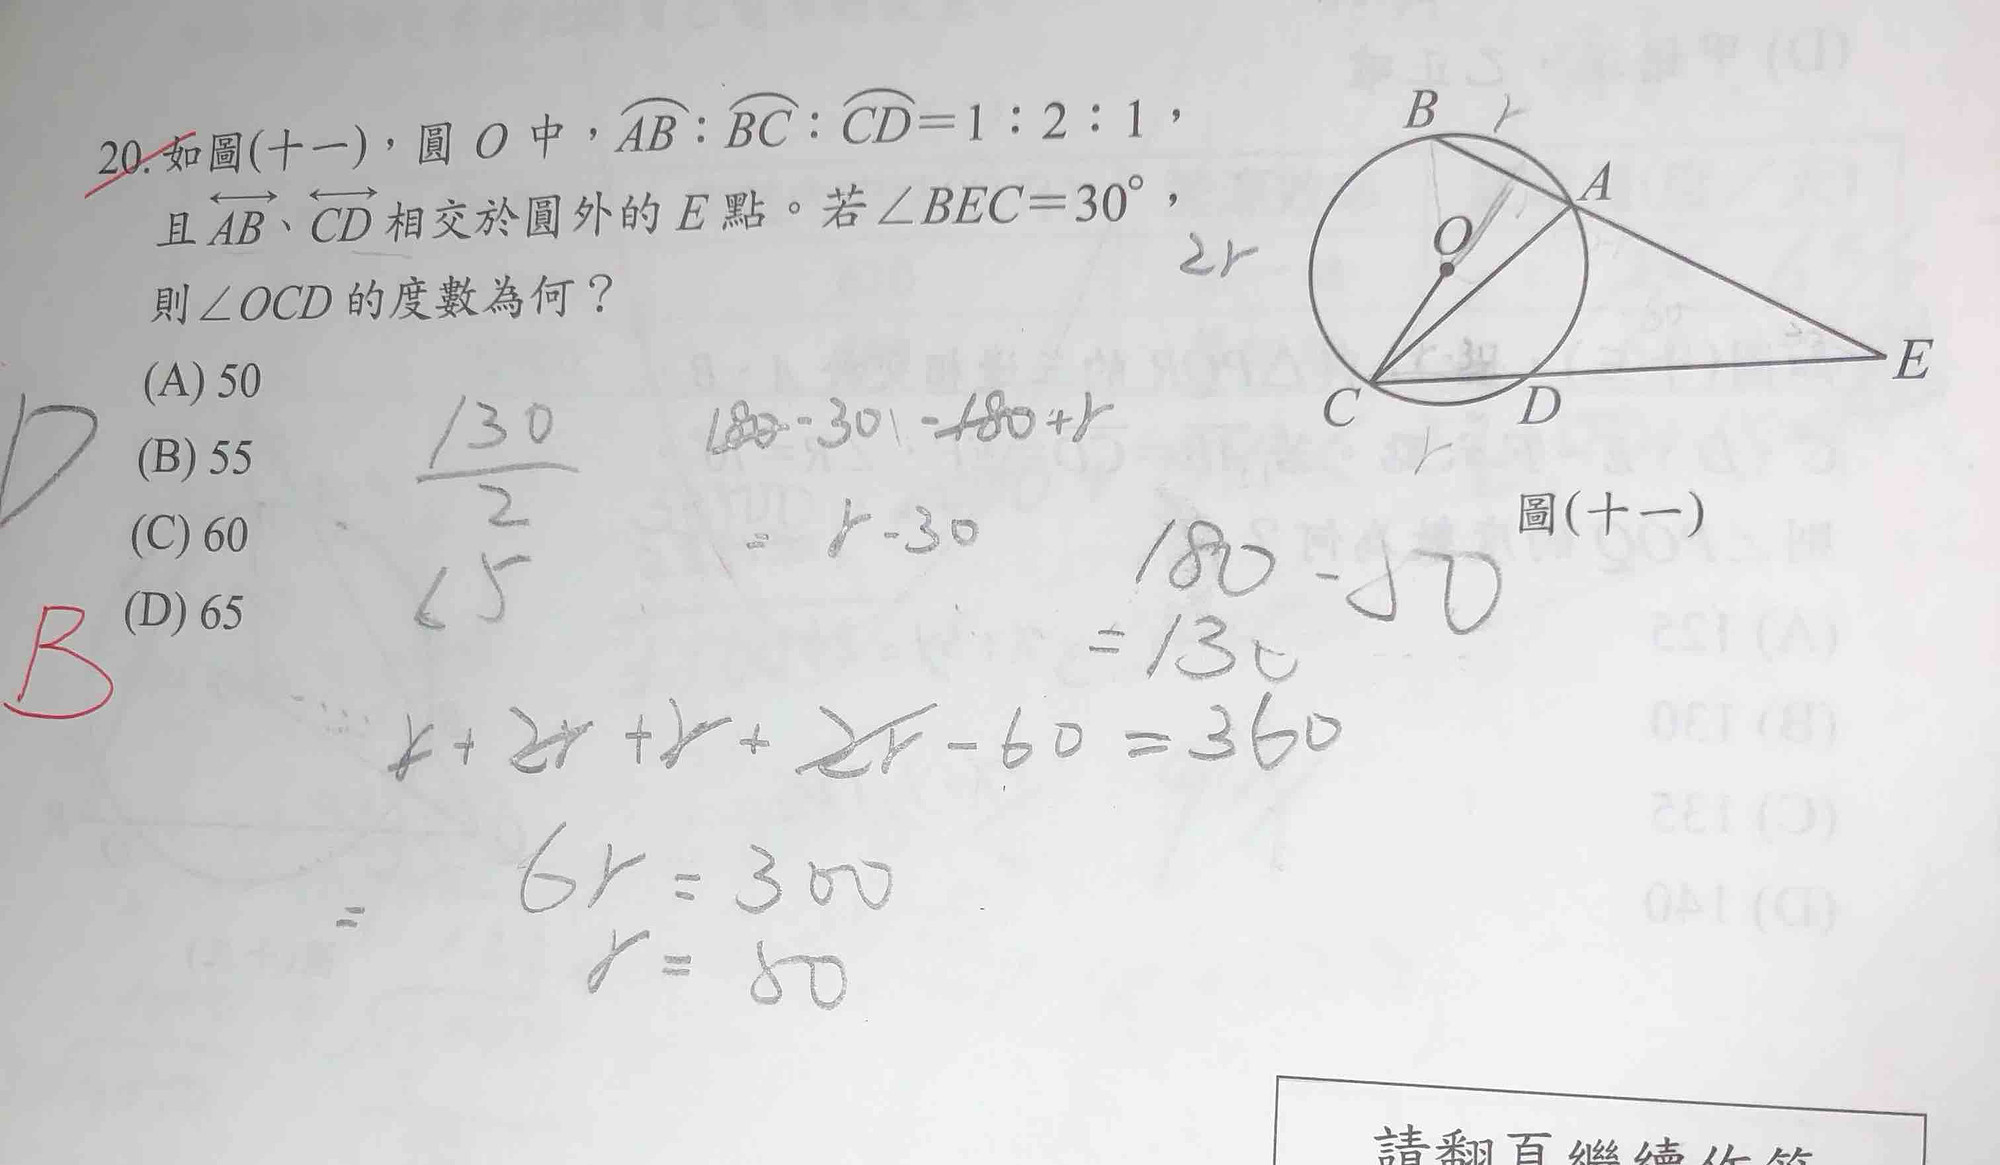 20. 如圖(十一)，圓 O 中，AB：BC：CD＝1：2：1，
且 AB、CD 相交於圓外的 E 點。若∠BEC＝30°，
則∠OCD 的度數為何？
(A) 50
(B) 55
(C) 60
(D) 65
D
B
B
r
A
O
2r
E
C
D
r
圖(十一)
130
2
65
180-30-180+r
= r-30
180-50
=130
r+2r+r+2r-60=360
6r=300
=
r=50
(A) 125
(B) 130
(C) 135
(D) 140
請翻頁繼續作答